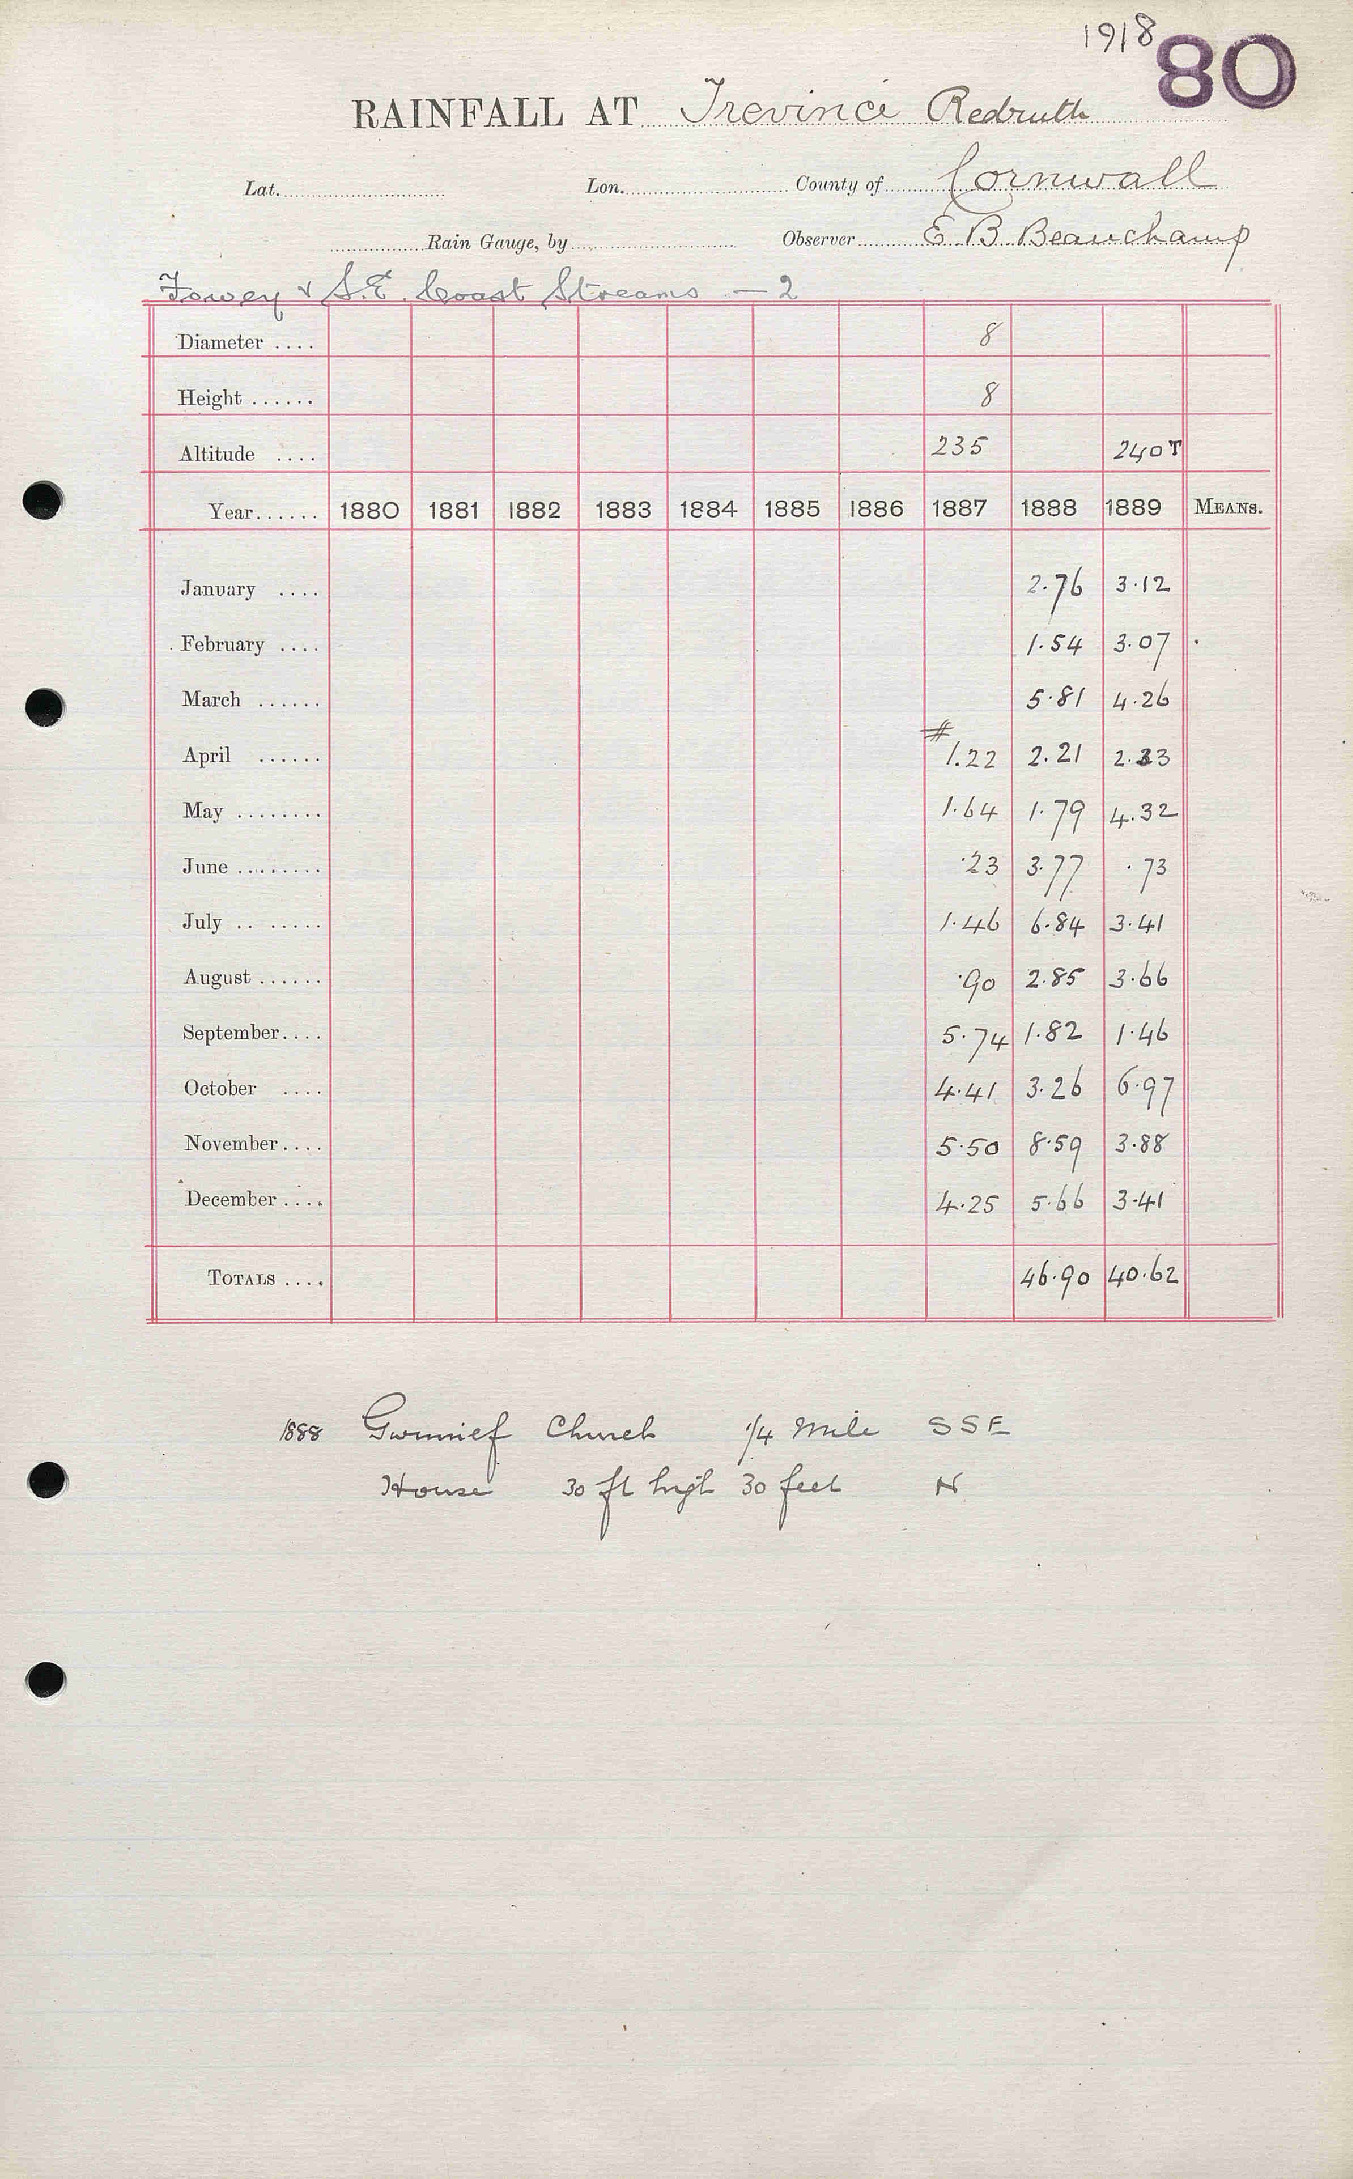 1918 80
RAINFALL AT Trevince Redruth
Lat. Lon. County of Cornwall
Rain Gauge, by Observer E B Beauchamp
Fowey & S.E. Coast Streams — 2
Diameter .... 8
Height ...... 8
Altitude .... 235 240T
Year...... 1880 1881 1882 1883 1884 1885 1886 1887 1888 1889 MEANS.
January .... 2.76 3.12
February .... 1.54 3.07
March ...... 5.81 4.26
April ...... # 1.22 2.21 2.33
May ........ 1.64 1.79 4.32
June ........ .23 3.77 .73
July .. ...... 1.46 6.84 3.41
August ...... .90 2.85 3.66
September.... 5.74 1.82 1.46
October .... 4.41 3.26 6.97
November.... 5.50 8.59 3.88
December .... 4.25 5.66 3.41
TOTALS .... 46.90 40.62
1888 Church 1/4 Mile SSE
House 30 ft high 30 feet N